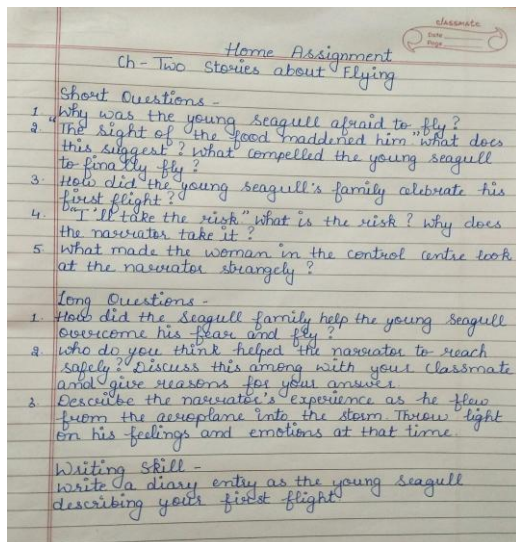 classmate
Date
Page
Home Assignment
Ch - Two Stories about Flying
Short Questions -
1. Why was the young seagull afraid to fly?
2. "The sight of the food maddened him." what does
this suggest? What compelled the young seagull
to finally fly?
3. How did the young seagull's family celebrate his
first flight?
4. "I'll take the risk" What is the risk? Why does
the narrator take it?
5. What made the woman in the control centre look
at the narrator strangely?
Long Questions -
1. How did the seagull family help the young seagull
overcome his fear and fly?
2. who do you think helped the narrator to reach
safely? Discuss this among with your classmate
and give reasons for your answer.
3. Describe the narrator's experience as he flew
from the aeroplane into the storm. Throw light
on his feelings and emotions at that time.
Writing Skill -
Write a diary entry as the young seagull
describing your first flight.